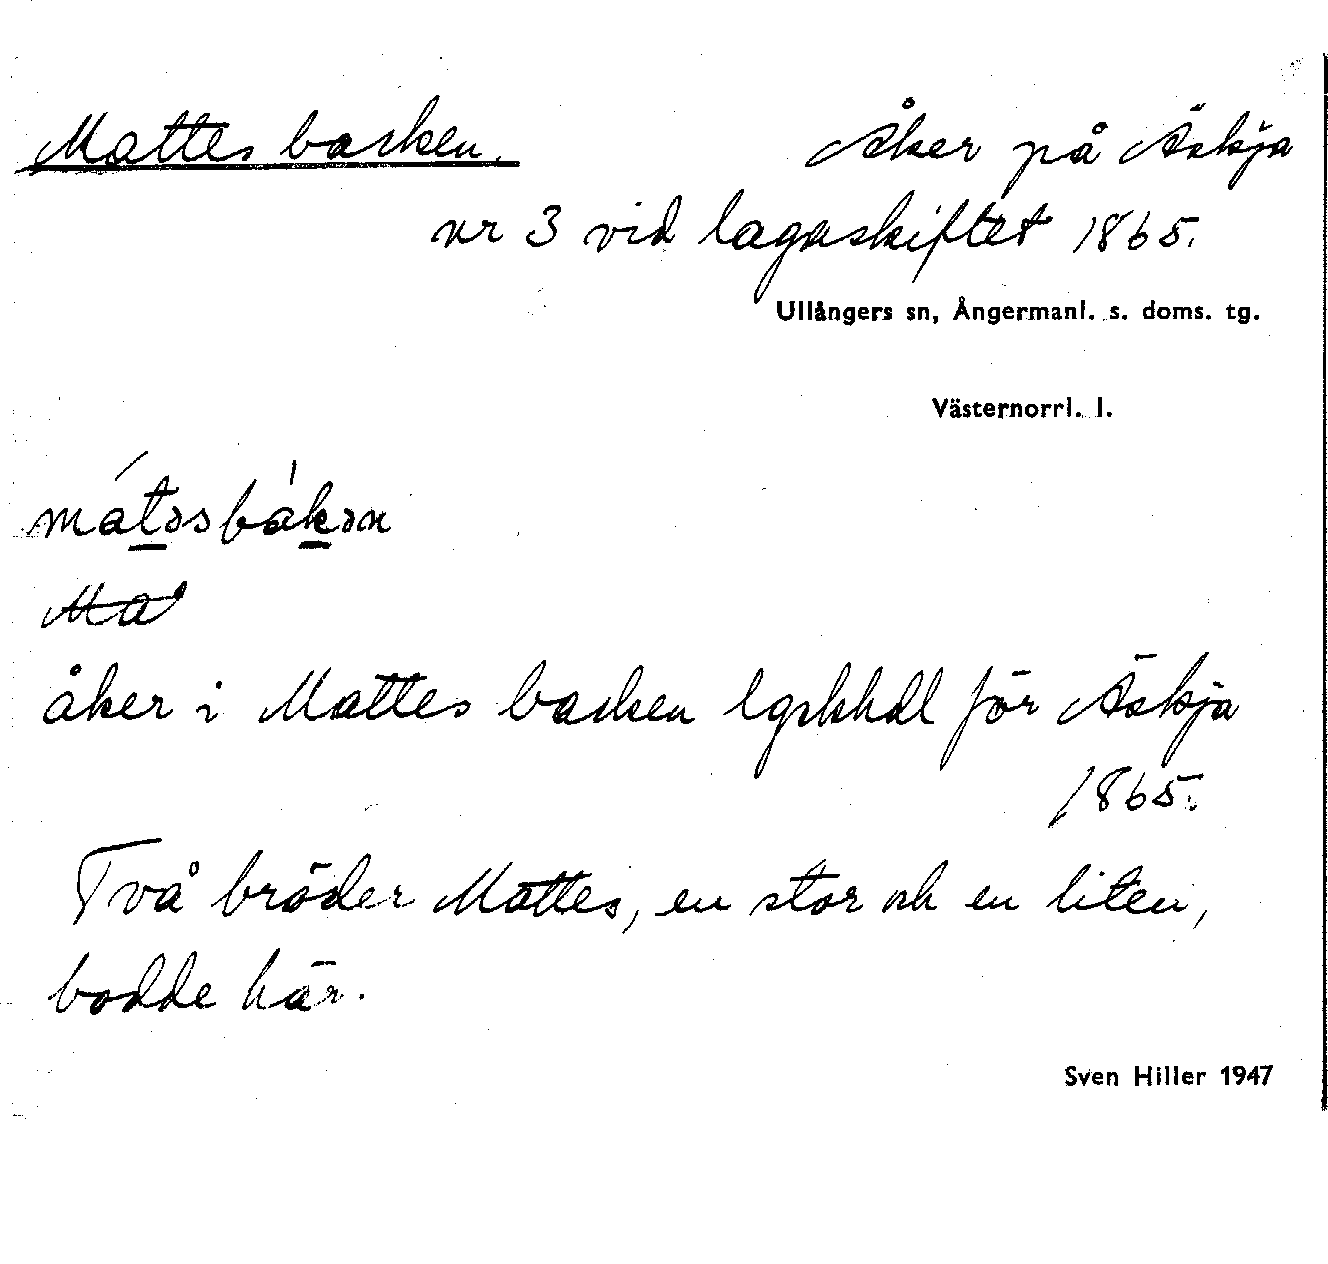 Mattes backen. Åker på Äskja
nr 3 vid lagaskiftet 1865.
Ullångers sn, Ångermanl. s. doms. tg.
Västernorrl. l.
mátəsbàkən
Ma
åker i Mattes backen lgskhdl för Äskja
1865.
Två bröder Mattes, en stor och en liten,
bodde här.
Sven Hiller 1947